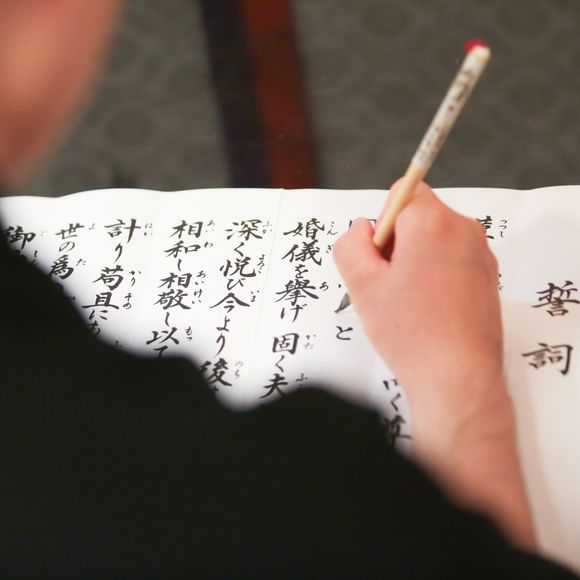 誓詞
く誓
と
婚儀を挙げ固く夫
深く悦び今より後
相和し相敬し以て
計り苟且にあ
世の爲
御